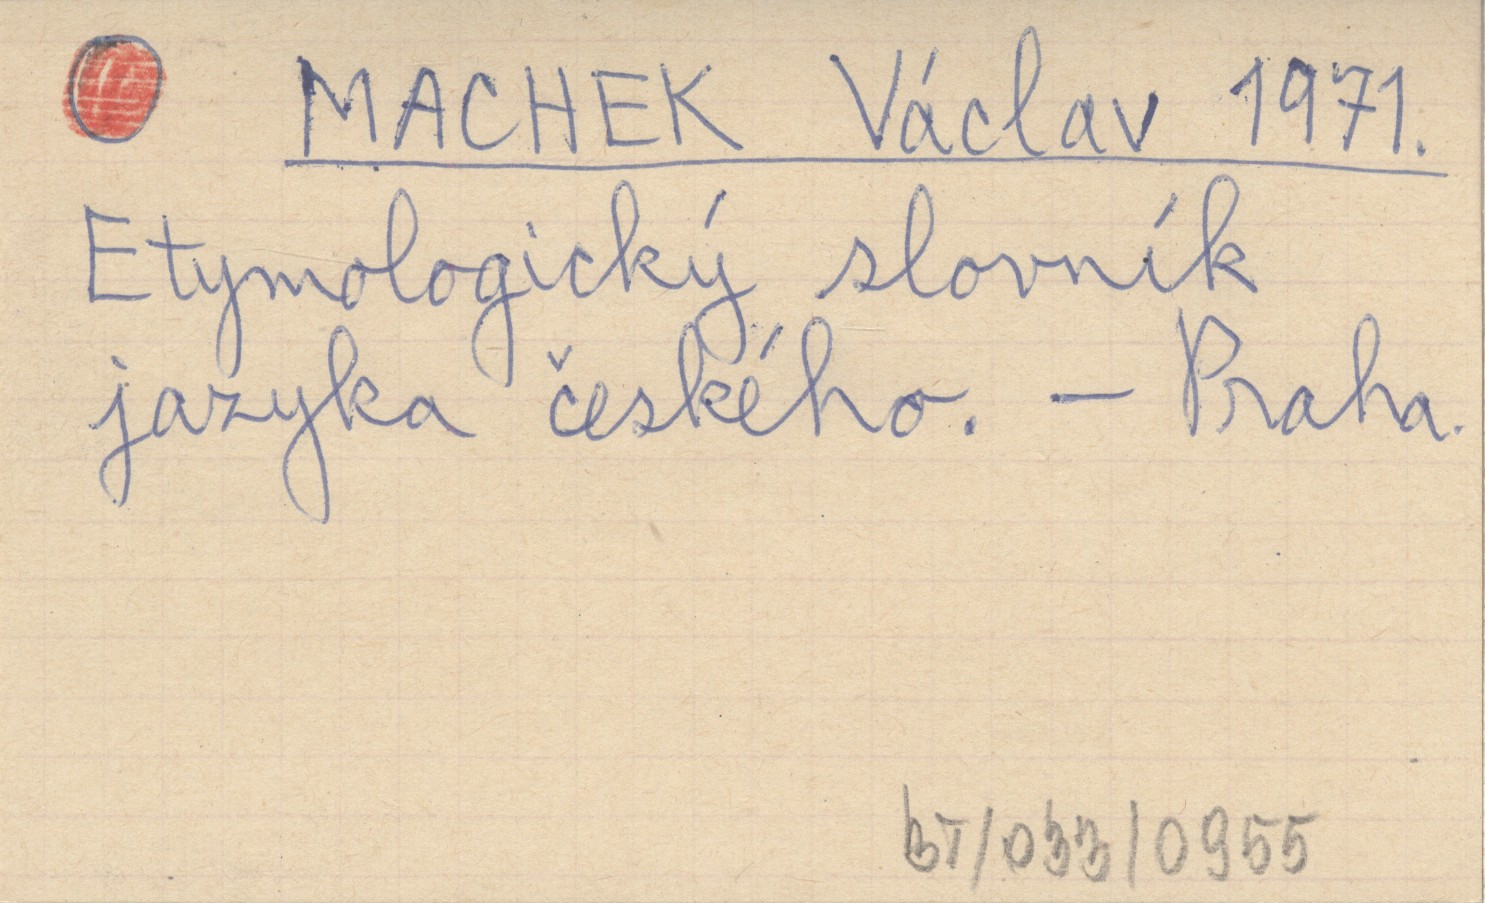 MACHEK Václav 1971.
Etymologický slovník
jazyka českého. – Praha.
BT/033/0955